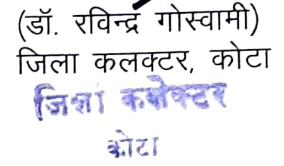 (डॉ. रविन्द्र गोस्वामी)
जिला कलक्टर, कोटा
जिला कलेक्टर
कोटा